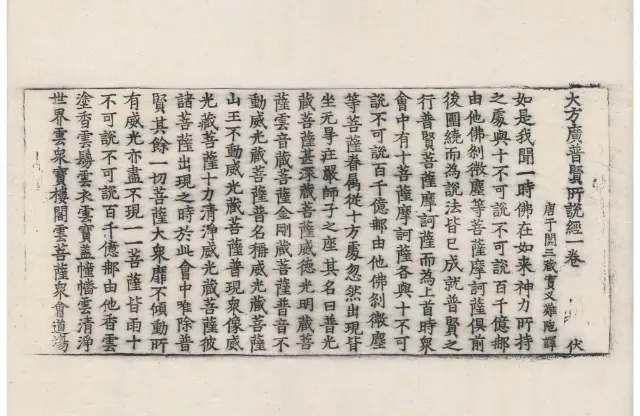 大方廣普賢所說經一卷 伏
唐于闐三藏實叉難陁譯
如是我聞一時佛在如來神力所持
之處與十不可說不可說百千億那
由他佛刹微塵等菩薩摩訶薩俱前
後圍繞而為說法皆已成就普賢之
行普賢菩薩摩訶薩而為上首時衆
會中有十菩薩摩訶薩各與十不可
說不可說百千億那由他佛刹微塵
等菩薩眷屬從十方處忽然出現皆
坐无㝵莊嚴師子之座其名曰普光
藏菩薩甚深藏菩薩威德光明藏菩
薩雲音藏菩薩金剛藏菩薩普音不
動威光藏菩薩普名稱威光藏菩薩
山王不動威光藏菩薩普現衆像威
光藏菩薩十力清淨威光藏菩薩彼
諸菩薩出現之時於此會中唯除普
賢其餘一切菩薩大衆靡不傾動所
有威光亦盡不現一一菩薩皆雨十
不可說不可說百千億那由他香雲
塗香雲鬘雲衣雲寶蓋幢幡雲清淨
世界雲衆寶樓閣雲菩薩衆會道場